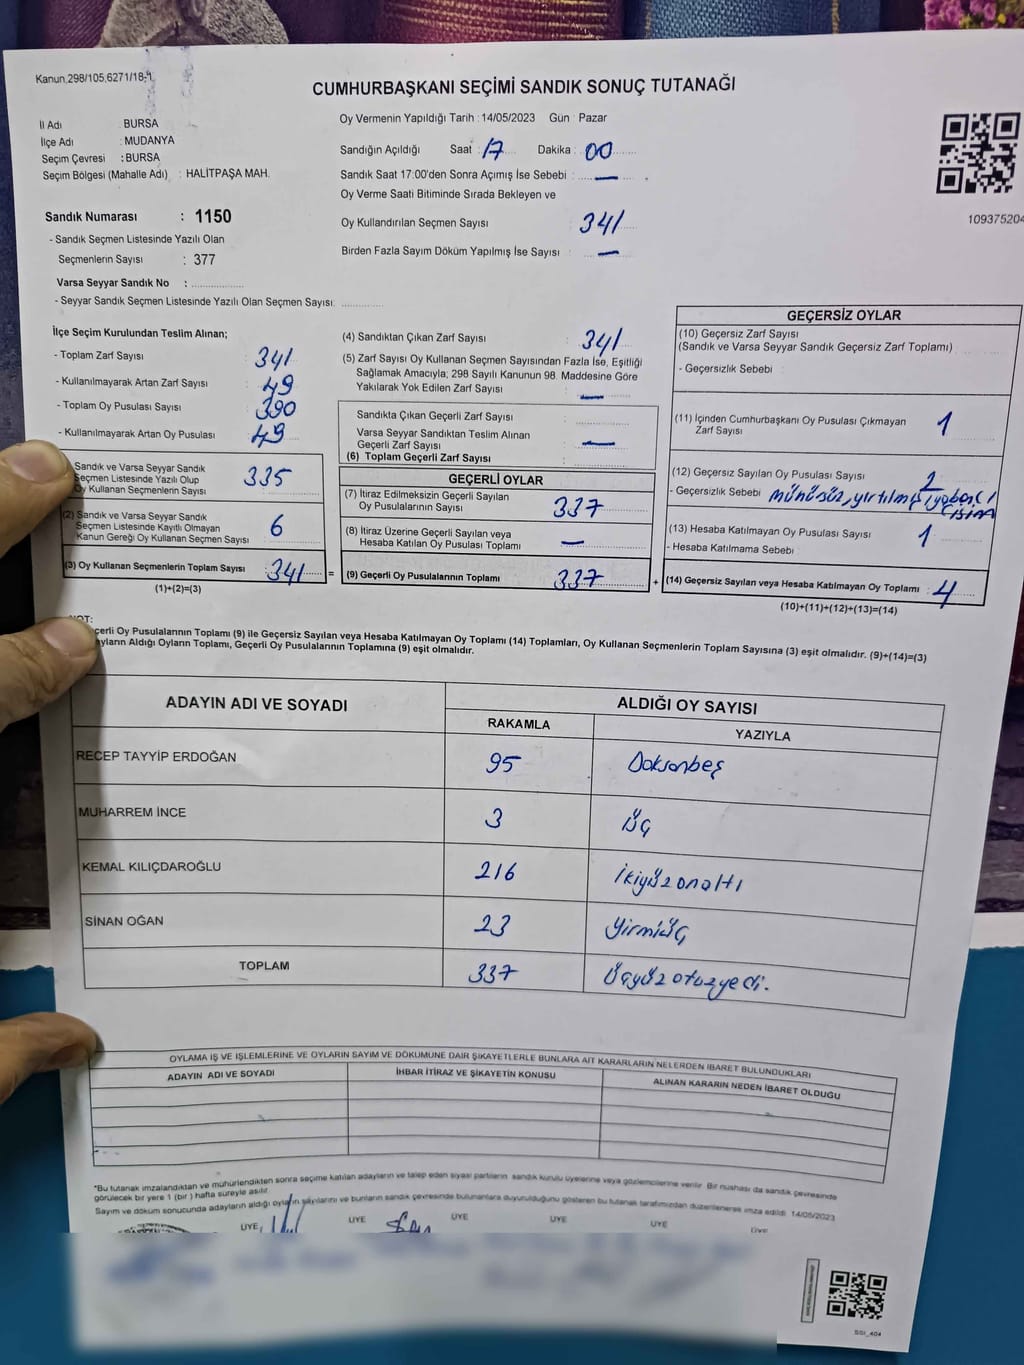 Kanun,298/105,6271/18-1
CUMHURBAŞKANI SEÇİMİ SANDIK SONUÇ TUTANAĞI
İl Adı BURSA
İlçe Adı : MUDANYA
Seçim Çevresi : BURSA
Seçim Bölgesi (Mahalle Adı) : HALİTPAŞA MAH.
Sandık Numarası : 1150
- Sandık Seçmen Listesinde Yazılı Olan
Seçmenlerin Sayısı : 377
Varsa Seyyar Sandık No :
- Seyyar Sandık Seçmen Listesinde Yazılı Olan Seçmen Sayısı:
Oy Vermenin Yapıldığı Tarih : 14/05/2023 Gün : Pazar
Sandığın Açıldığı Saat : 17 Dakika : 00
Sandık Saat 17:00'den Sonra Açımış İse Sebebi : —
Oy Verme Saati Bitiminde Sırada Bekleyen ve
Oy Kullandırılan Seçmen Sayısı 341
Birden Fazla Sayım Döküm Yapılmış İse Sayısı : —
109375204
İlçe Seçim Kurulundan Teslim Alınan;
- Toplam Zarf Sayısı 341
- Kullanılmayarak Artan Zarf Sayısı 49
- Toplam Oy Pusulası Sayısı 390
- Kullanılmayarak Artan Oy Pusulası 49
Sandık ve Varsa Seyyar Sandık
Seçmen Listesinde Yazılı Olup
Oy Kullanan Seçmenlerin Sayısı 335
(2) Sandık ve Varsa Seyyar Sandık
Seçmen Listesinde Kayıtlı Olmayan
Kanun Gereği Oy Kullanan Seçmen Sayısı 6
(3) Oy Kullanan Seçmenlerin Toplam Sayısı 341 =
(1)+(2)=(3)
(4) Sandıktan Çıkan Zarf Sayısı : 341
(5) Zarf Sayısı Oy Kullanan Seçmen Sayısından Fazla İse, Eşitliği
Sağlamak Amacıyla; 298 Sayılı Kanunun 98. Maddesine Göre
Yakılarak Yok Edilen Zarf Sayısı : —
Sandıkta Çıkan Geçerli Zarf Sayısı :
Varsa Seyyar Sandıktan Teslim Alınan
Geçerli Zarf Sayısı : —
(6) Toplam Geçerli Zarf Sayısı :
GEÇERLİ OYLAR
(7) İtiraz Edilmeksizin Geçerli Sayılan
Oy Pusulalarının Sayısı : 337
(8) İtiraz Üzerine Geçerli Sayılan veya
Hesaba Katılan Oy Pusulası Toplamı : —
(9) Geçerli Oy Pusulalarının Toplamı : 337 +
GEÇERSİZ OYLAR
(10) Geçersiz Zarf Sayısı
(Sandık ve Varsa Seyyar Sandık Geçersiz Zarf Toplamı) :
- Geçersizlik Sebebi :
(11) İçinden Cumhurbaşkanı Oy Pusulası Çıkmayan
Zarf Sayısı 1
(12) Geçersiz Sayılan Oy Pusulası Sayısı : 2
- Geçersizlik Sebebi mühürsüz, yırtılmış,
(13) Hesaba Katılmayan Oy Pusulası Sayısı : 1
- Hesaba Katılmama Sebebi :
(14) Geçersiz Sayılan veya Hesaba Katılmayan Oy Toplamı : 4
(10)+(11)+(12)+(13)=(14)
NOT:
Geçerli Oy Pusulalarının Toplamı (9) ile Geçersiz Sayılan veya Hesaba Katılmayan Oy Toplamı (14) Toplamları, Oy Kullanan Seçmenlerin Toplam Sayısına (3) eşit olmalıdır. (9)+(14)=(3)
Adayların Aldığı Oyların Toplamı, Geçerli Oy Pusulalarının Toplamına (9) eşit olmalıdır.
ADAYIN ADI VE SOYADI ALDIĞI OY SAYISI
RAKAMLA YAZIYLA
RECEP TAYYİP ERDOĞAN 95 Doksanbeş
MUHARREM İNCE 3 Üç
KEMAL KILIÇDAROĞLU 216 İkiyüzonaltı
SİNAN OĞAN 23 Yirmiüç
TOPLAM 337 Üçyüzotuzyedi.
OYLAMA İŞ VE İŞLEMLERİNE VE OYLARIN SAYIM VE DÖKÜMÜNE DAİR ŞİKAYETLERLE BUNLARA AİT KARARLARIN NELERDEN İBARET BULUNDUKLARI
ADAYIN ADI VE SOYADI İHBAR İTİRAZ VE ŞİKAYETİN KONUSU ALINAN KARARIN NEDEN İBARET OLDUĞU
*Bu tutanak imzalandıktan ve mühürlendikten sonra seçime katılan adayların ve talep eden siyasi partilerin sandık kurulu üyelerine veya gözlemcilerine verilir. Bir nüshası da sandık çevresinde
görülecek bir yere 1 (bir) hafta süreyle asılır.
Sayım ve döküm sonucunda adayların aldığı oyların sayılarını ve bunların sandık çevresinde bulunanlara duyurulduğunu gösteren bu tutanak tarafımızdan düzenlenerek imza edildi. 14/05/2023
ÜYE ÜYE ÜYE ÜYE ÜYE ÜYE
SSİ_404